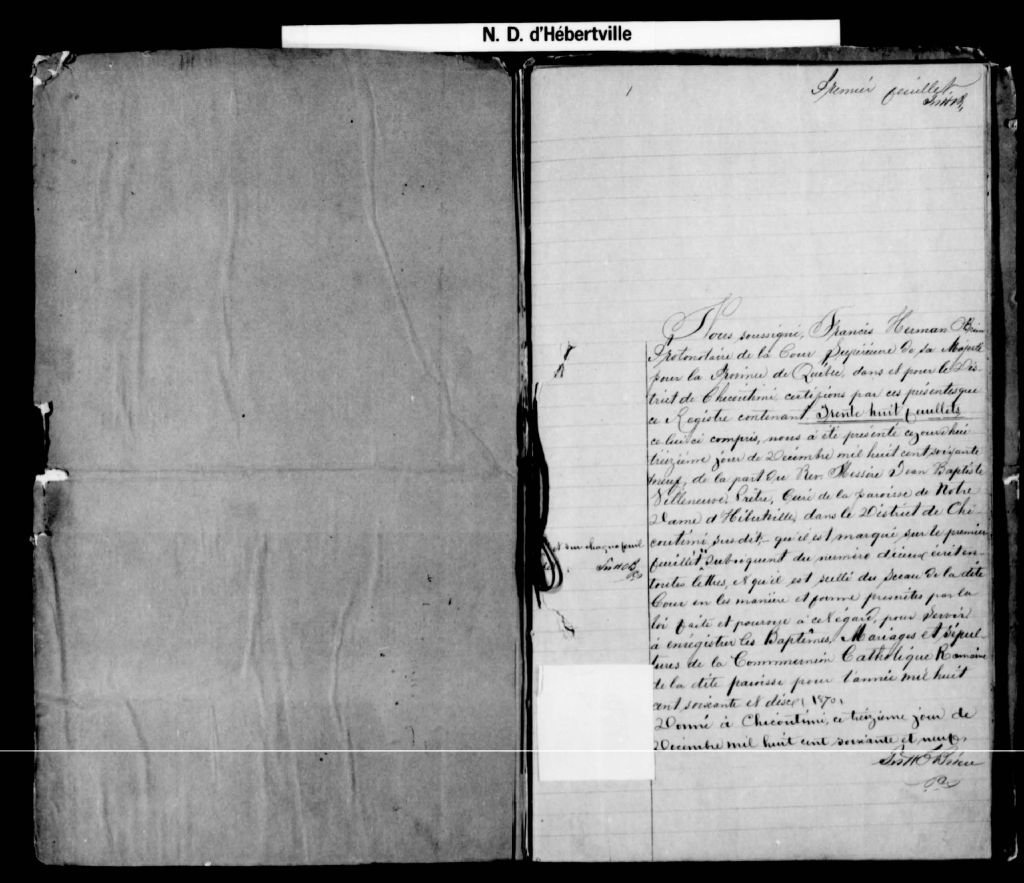 N. D. d'Hébertville
1
Premier feuillet
Nous soussigné, Francis Herman
Protonotaire de la Cour Supérieure de sa Majesté
pour la Province de Québec, dans et pour le Dis-
trict de Chicoutimi certifions par ces présentes que
ce Registre contenant Trente huit feuillets
celui ci compris, nous a été présenté ce jourdhui
treizième jour de Décembre mil huit cent soixante
neuf, de la part du Rev. Messire Jean Baptiste
Villeneuve, Prêtre, Curé de la paroisse de Notre
Dame d'Hébertville, dans le District de Chi-
coutimi susdit, qu'il est marqué sur le premier
feuillet subséquent du numéro écrit en
toutes lettres, et qu'il est scellé du Sceau de la dite
Cour en les manière et forme prescrites par la
loi faite et pourvue à cet égard, pour servir
à enrégistrer les Baptêmes, Mariages et Sépul-
tures de la Communion Catholique Romaine
de la dite paroisse pour l'année mil huit
cent soixante et dix (1870)
Donné à Chicoutimi, ce treizième jour de
Décembre mil huit cent soixante et neuf
et sur chaque feuil